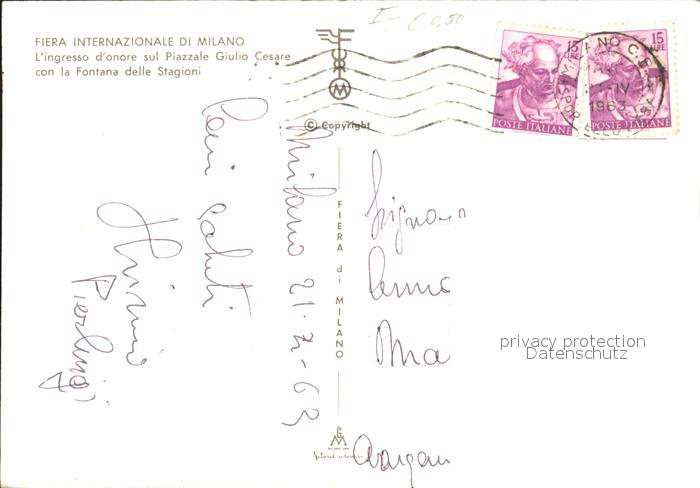 FIERA INTERNAZIONALE DI MILANO
L'ingresso d'onore sul Piazzale Giulio Cesare
con la Fontana delle Stagioni
I- € 0,50
15
LIRE
POSTE ITALIANE
15
LIRE
POSTE ITALIANE
1963
© Copyright
Milano 21-4-63
Cari saluti
Pierluigi
FIERA di MILANO
Signora
Anna
privacy protection
Datenschutz